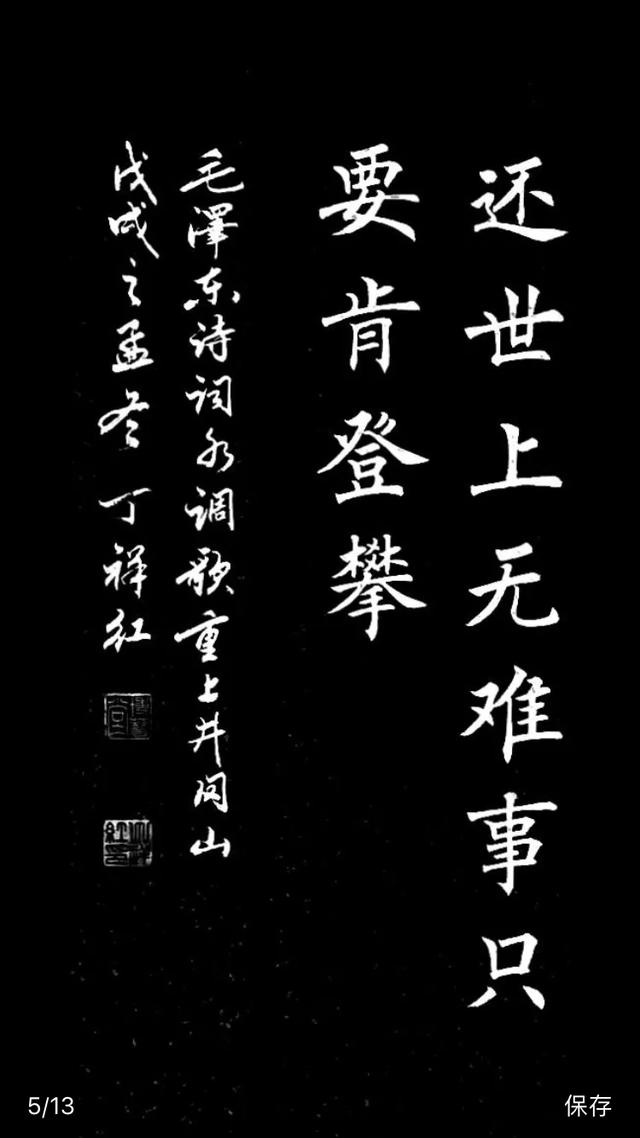 还世上无难事只
要肯登攀
毛澤东诗词水调歌重上井冈山
戊戌之孟冬丁祥红
5/13
保存